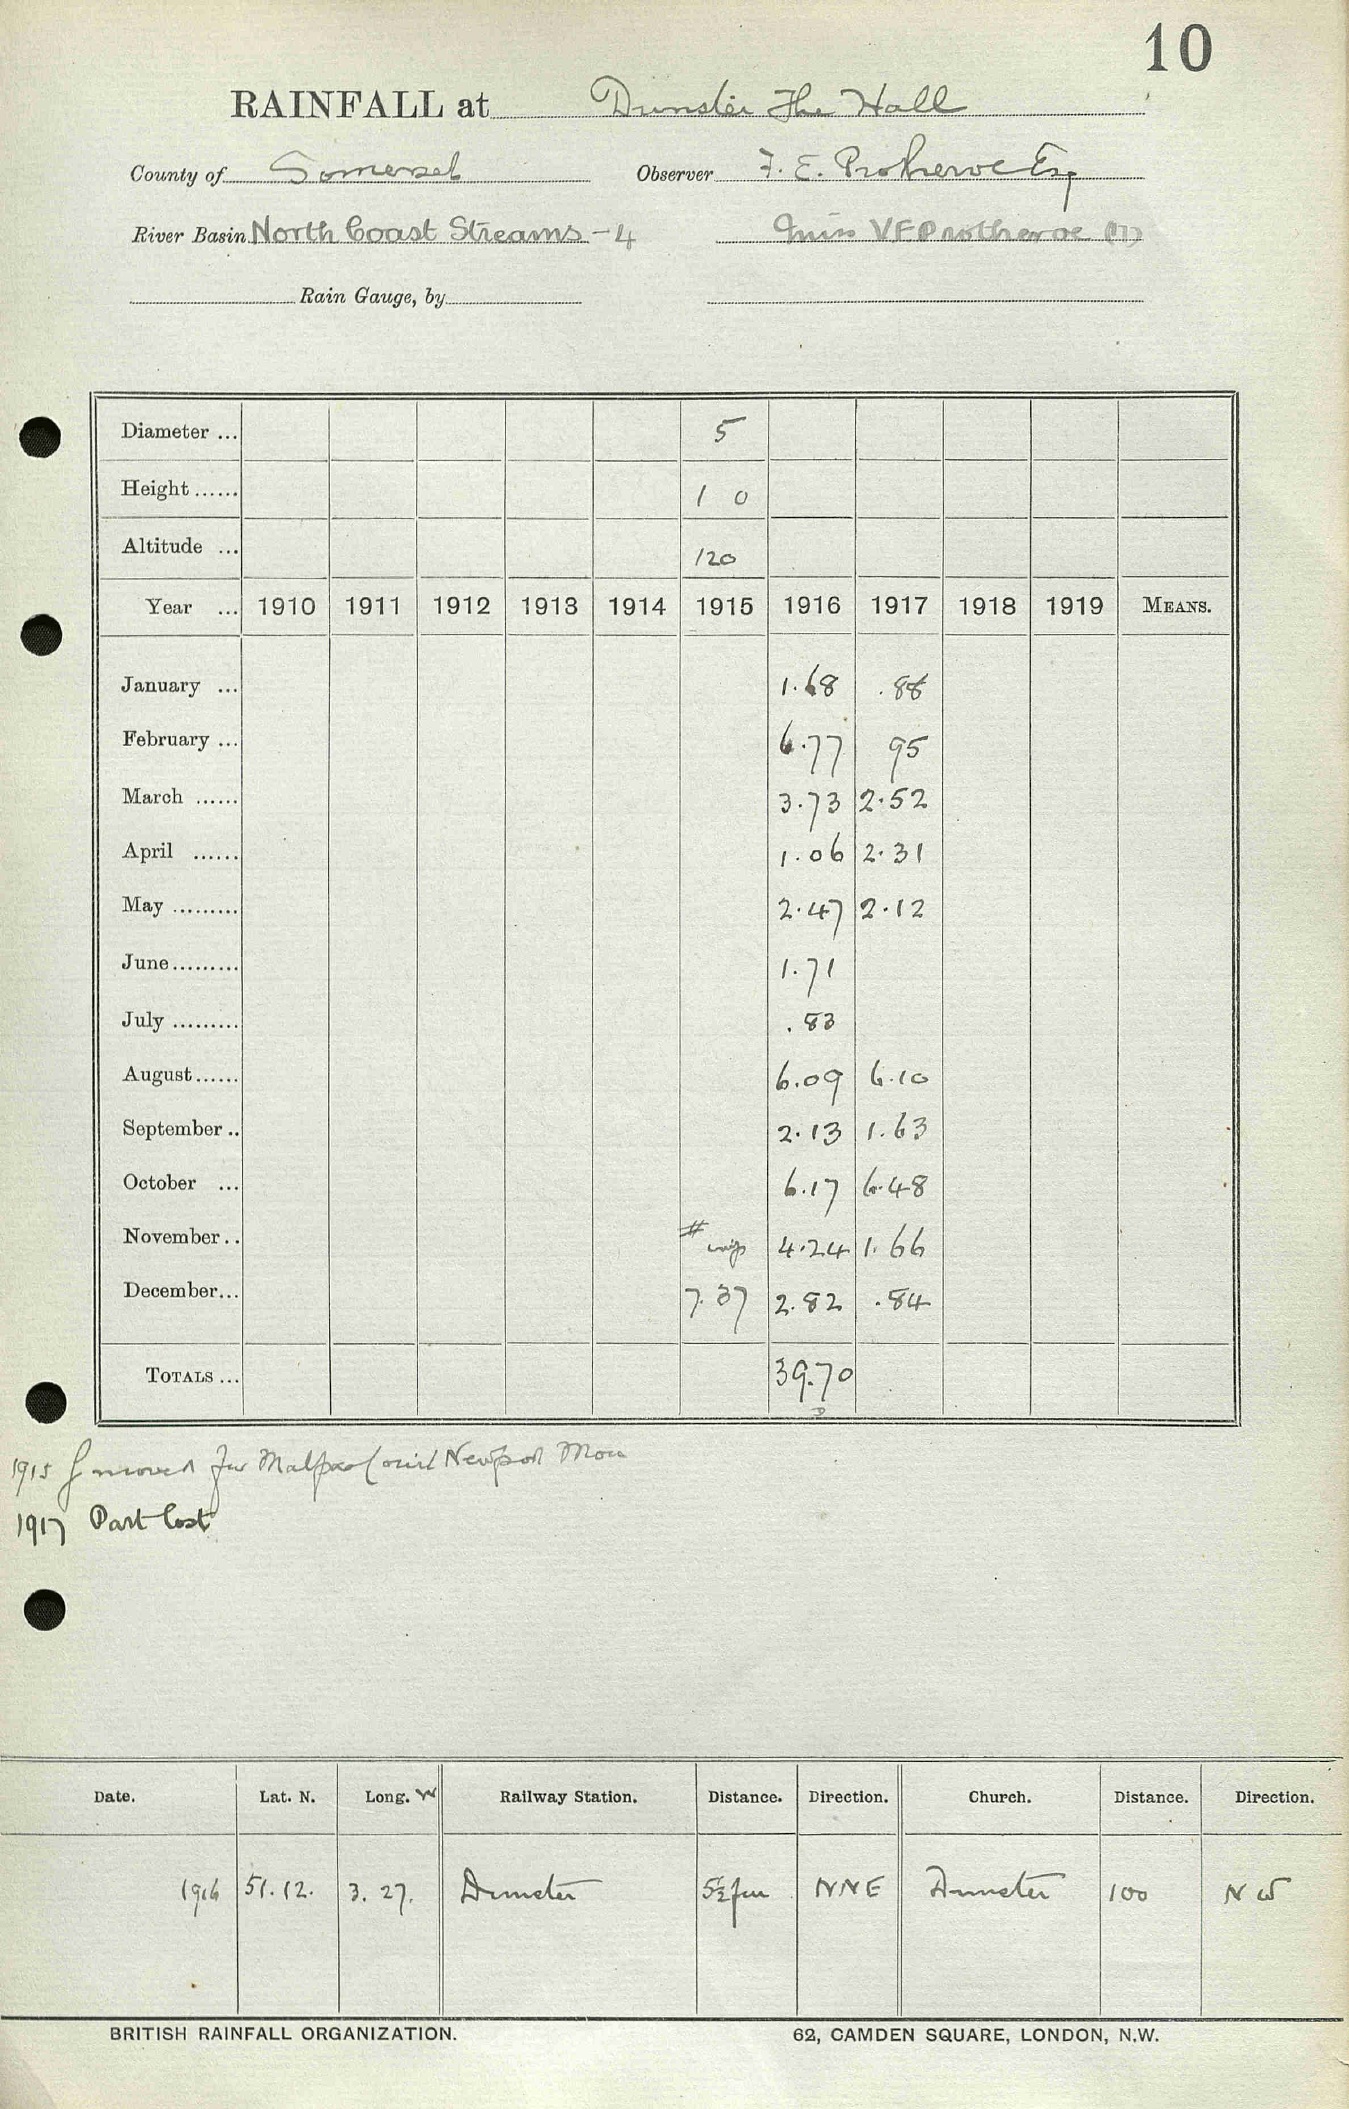 10
RAINFALL at Dunster The Hall
County of Somerset Observer F. E. Protheroe Esq
River Basin North Coast Streams - 4 Miss V F Protheroe
Rain Gauge, by
Diameter ... 5
Height ...... 1 0
Altitude ... 120
Year ... 1910 1911 1912 1913 1914 1915 1916 1917 1918 1919 MEANS.
January ... 1.68 .88
February ... 6.77 95
March ...... 3.73 2.52
April ...... 1.06 2.31
May ......... 2.47 2.12
June ......... 1.71
July ......... .83
August ...... 6.09 6.10
September .. 2.13 1.63
October ... 6.17 6.48
November .. # 4.24 1.66
December ... 7.37 2.82 .84
TOTALS ... 39.70
1915 moved Malpas Court Newport Mon
1917 Part lost
Date. Lat. N. Long. W Railway Station. Distance. Direction. Church. Distance. Direction.
1916 51.12. 3. 27. Dunster 5½ fur NNE Dunster 100 NW
BRITISH RAINFALL ORGANIZATION. 62, CAMDEN SQUARE, LONDON, N.W.